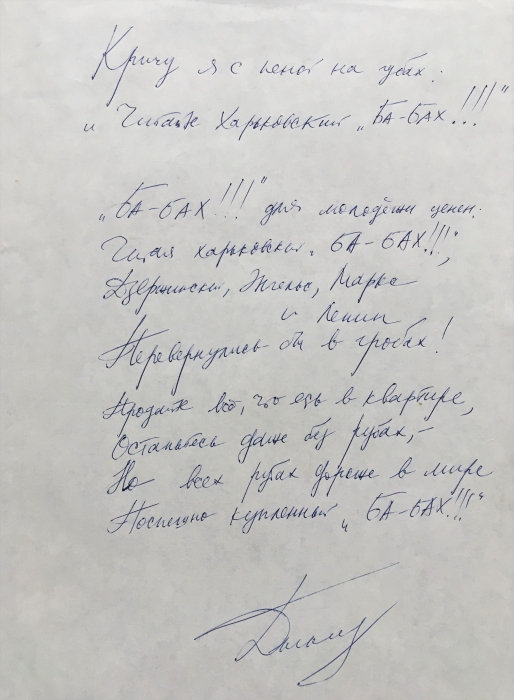 Кричу я с пеной на губах:
„Читайте Харьковский „БА-БАХ!!!"
„БА-БАХ!!!" для молодёжи ценен:
Читая харьковский „БА-БАХ!!!",
Дзержинский, Энгельс, Маркс
и Ленин
Перевернулись бы в гробах!
Продайте всё, что есть в квартире,
Останьтесь даже без рубах, –
Но всех рубах дороже в мире
Поспешно купленный „БА-БАХ!!!"